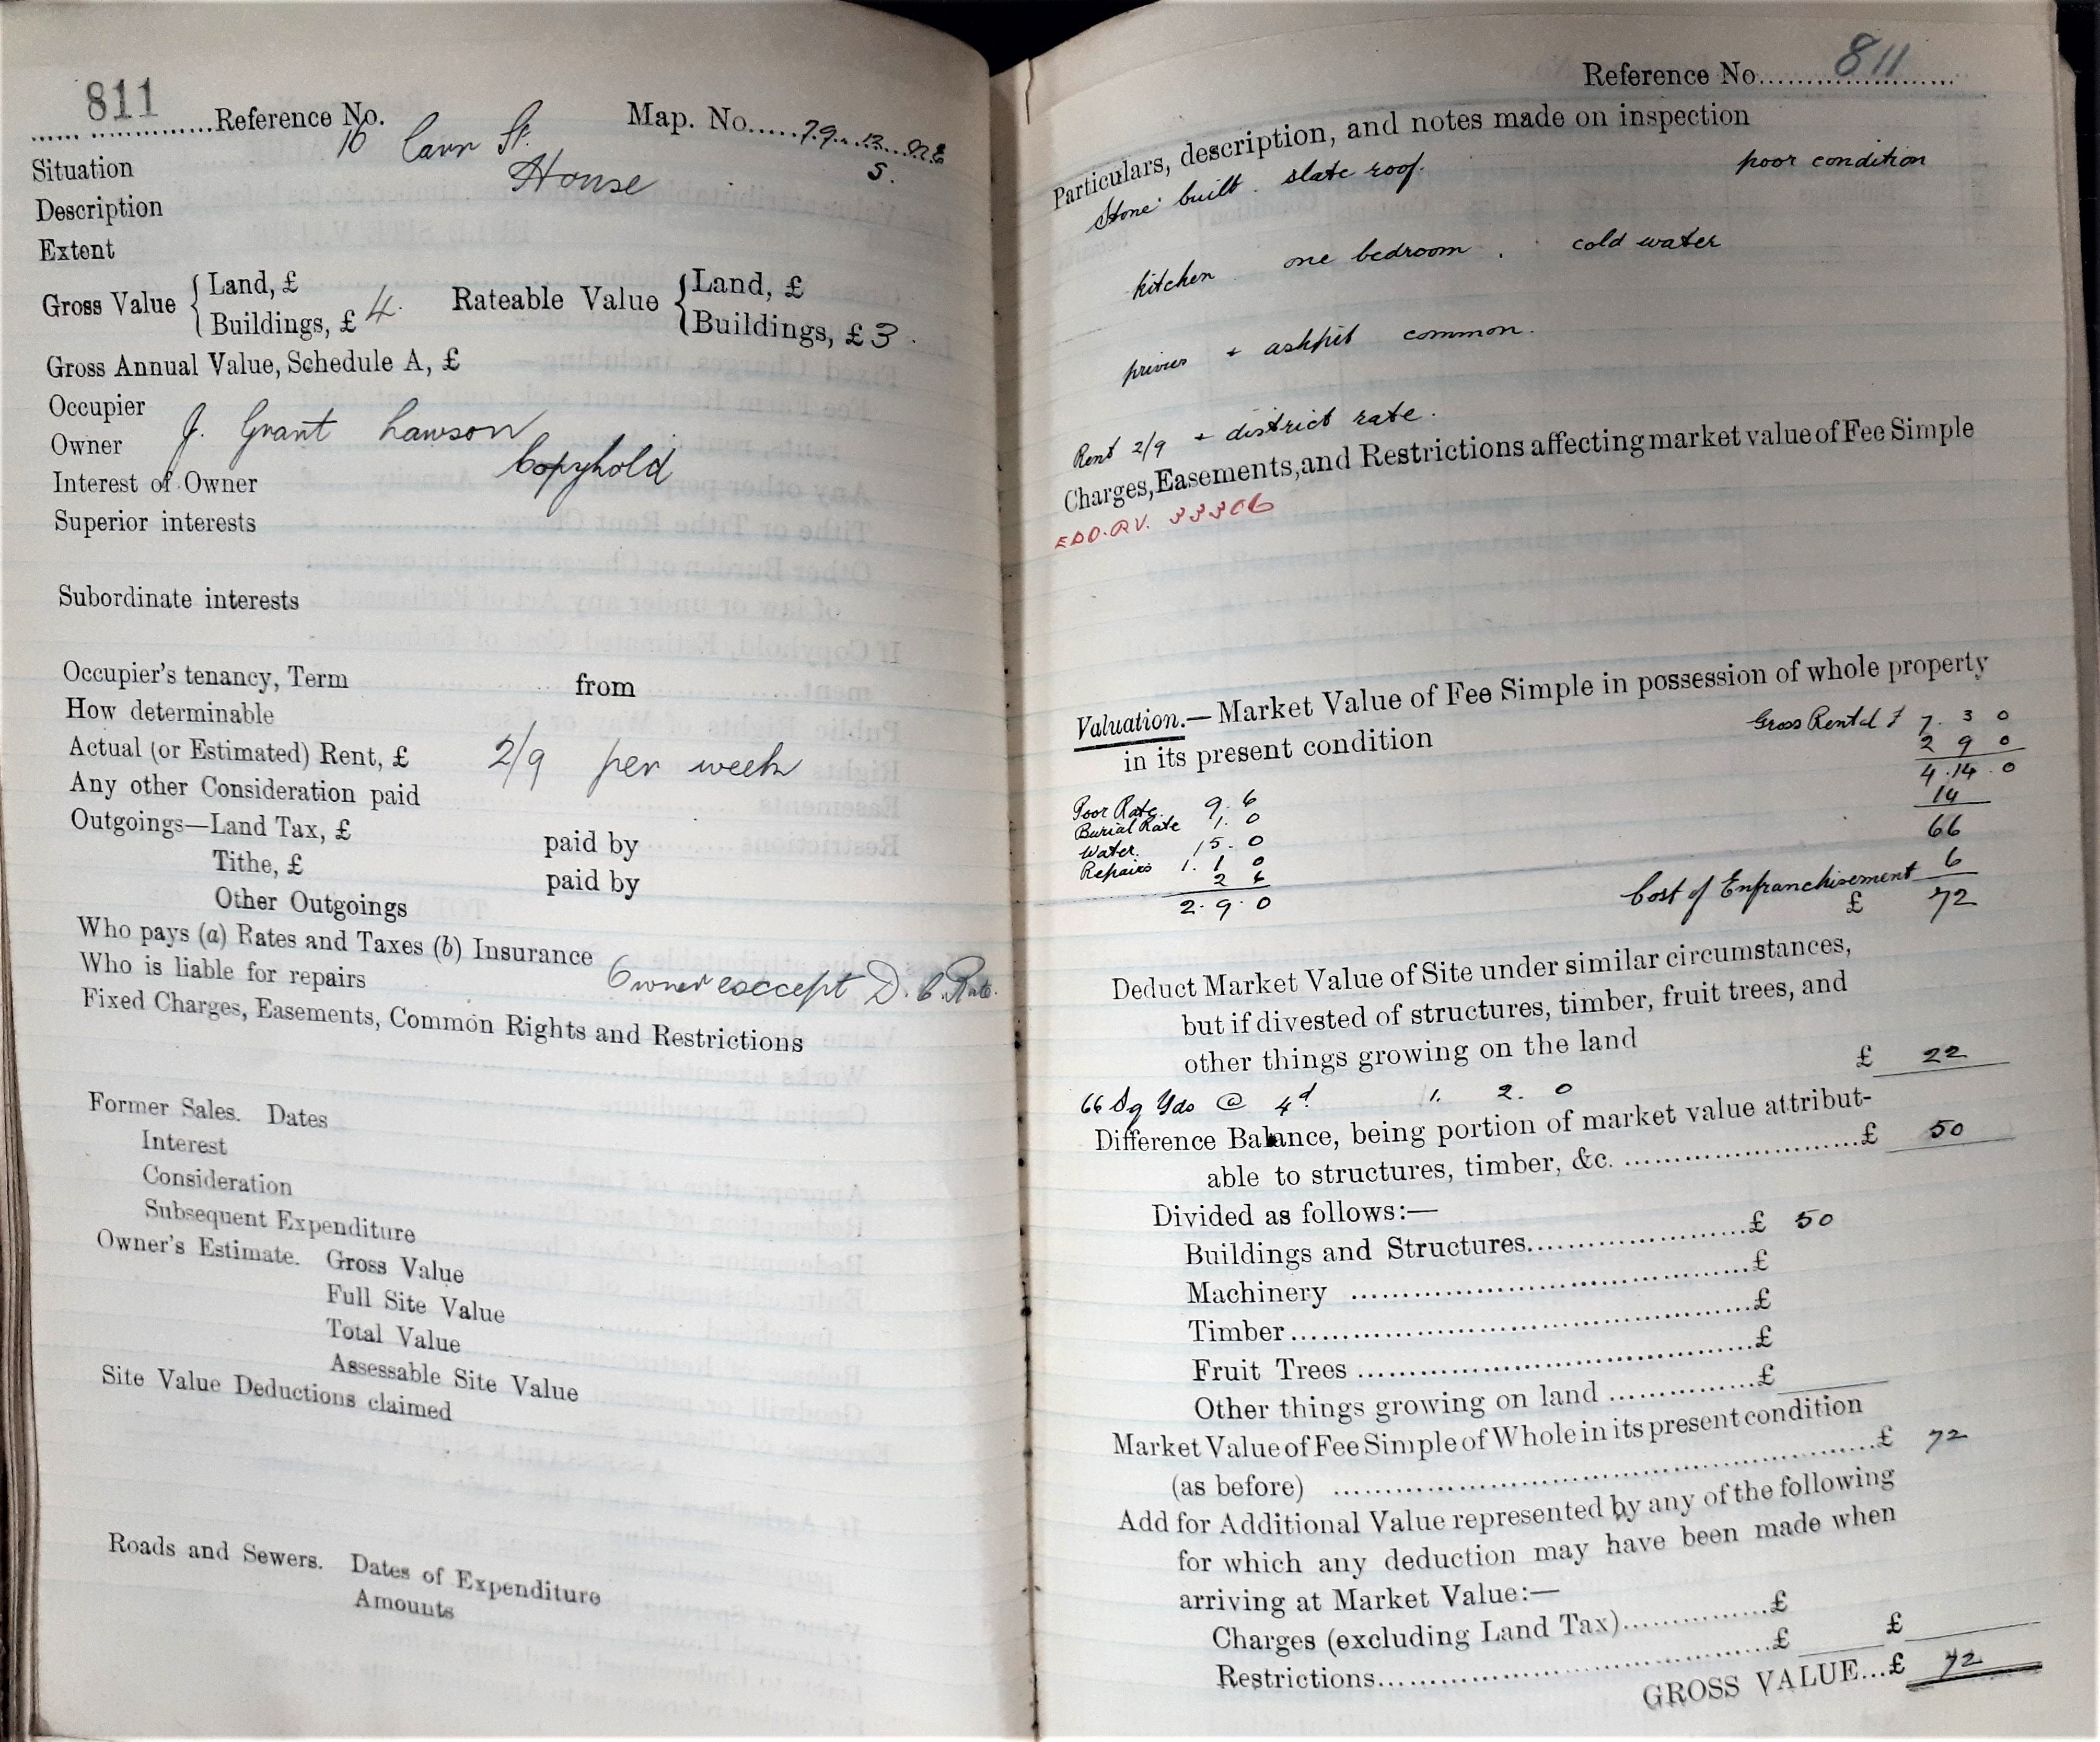 811
...... .............Reference No.
Map. No.....79..13...
S.
Situation 16 Carr St.
Description House
Extent
Gross Value { Land, £ Rateable Value { Land, £
Buildings, £ 4. Buildings, £ 3.
Gross Annual Value, Schedule A, £
Occupier
Owner J. Grant Lawson
Interest of Owner Copyhold
Superior interests
Subordinate interests
Occupier's tenancy, Term from
How determinable
Actual (or Estimated) Rent, £ 2/9 per week
Any other Consideration paid
Outgoings—Land Tax, £ paid by
Tithe, £ paid by
Other Outgoings
Who pays (a) Rates and Taxes (b) Insurance
Who is liable for repairs Owner except D. C. Rate.
Fixed Charges, Easements, Common Rights and Restrictions
Former Sales. Dates
Interest
Consideration
Subsequent Expenditure
Owner's Estimate. Gross Value
Full Site Value
Total Value
Assessable Site Value
Site Value Deductions claimed
Roads and Sewers. Dates of Expenditure
Amounts
Reference No. 811
Particulars, description, and notes made on inspection
Stone built. slate roof. poor condition
kitchen one bedroom. cold water
privies + ashpit common.
Rent 2/9 + district rate.
Charges, Easements, and Restrictions affecting market value of Fee Simple
EDO.RV. 33306
Valuation.—Market Value of Fee Simple in possession of whole property
in its present condition
Gross Rental £ 7. 3 0
2 9 0
4.14.0
14
66
Cost of Enfranchisement 6
£ 72
Poor Rate. 9. 6
Burial Rate 1. 0
Water. 15. 0
Repairs 1. 1 0
2 6
2. 9. 0
Deduct Market Value of Site under similar circumstances,
but if divested of structures, timber, fruit trees, and
other things growing on the land £ 22
66 Sq Yds @ 4d 1. 2. 0
Difference Balance, being portion of market value attribut-
able to structures, timber, &c. ........................£ 50
Divided as follows:—
Buildings and Structures........................£ 50
Machinery ........................£
Timber........................£
Fruit Trees ........................£
Other things growing on land ...............£
Market Value of Fee Simple of Whole in its present condition
(as before) ........................£ 72
Add for Additional Value represented by any of the following
for which any deduction may have been made when
arriving at Market Value:—
Charges (excluding Land Tax)...............£
Restrictions........................£ £
GROSS VALUE...£ 72